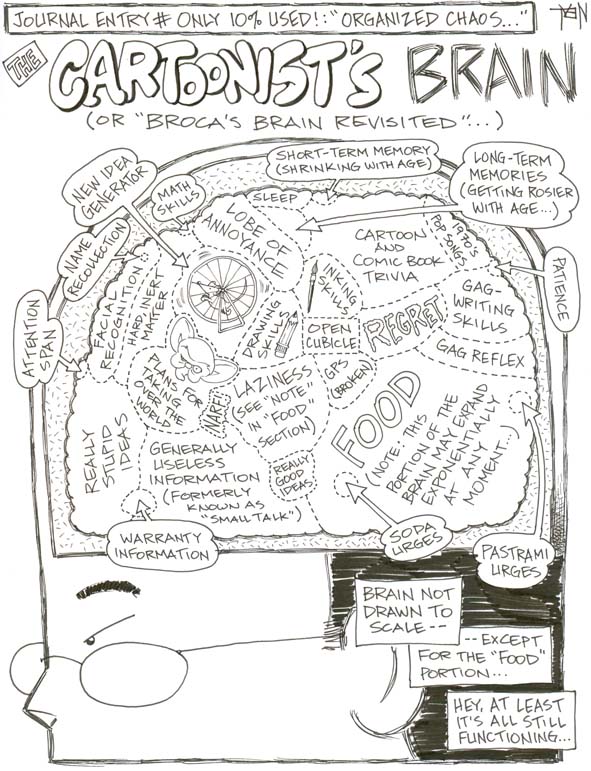 JOURNAL ENTRY # ONLY 10% USED!: "ORGANIZED CHAOS..."
THE
CARTOONIST'S BRAIN
(OR "BROCA'S BRAIN REVISITED"...)
NEW IDEA
GENERATOR
MATH
SKILLS
SHORT-TERM MEMORY
(SHRINKING WITH AGE)
LONG-TERM
MEMORIES
(GETTING ROSIER
WITH AGE...)
NAME
RECOLLECTION
ATTENTION
SPAN
PATIENCE
SLEEP
LOBE OF
ANNOYANCE
CARTOON
AND
COMIC BOOK
TRIVIA
1970'S
POP SONGS
FACIAL
RECOGNITION
HARD, INERT
MATTER
DRAWING
SKILLS
INKING
SKILLS
OPEN
CUBICLE
REGRET
GAG-
WRITING
SKILLS
GAG REFLEX
PLANS FOR
TAKING
OVER THE
WORLD
NARF!
LAZINESS
(SEE "NOTE"
IN "FOOD"
SECTION)
GPS
(BROKEN)
FOOD
(NOTE: THIS
PORTION OF THE
BRAIN MAY EXPAND
EXPONENTIALLY
AT ANY
MOMENT...)
REALLY
STUPID
IDEAS
GENERALLY
USELESS
INFORMATION
(FORMERLY
KNOWN AS
"SMALL TALK")
REALLY
GOOD
IDEAS
WARRANTY
INFORMATION
SODA
URGES
PASTRAMI
URGES
BRAIN NOT
DRAWN TO
SCALE--
--EXCEPT
FOR THE "FOOD"
PORTION...
HEY, AT LEAST
IT'S ALL STILL
FUNCTIONING...